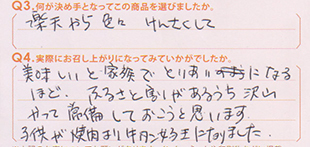 Q3.何が決め手となってこの商品を選びましたか。
楽天から 色々 けんさくして
Q4.実際にお召し上がりになってみていかがでしたか。
美味しいと家族でとりあいになる
ほど。ふるさと割があるうち沢山
やって常備しておこうと思います。
子供が焼肉より牛丼好きになりました。